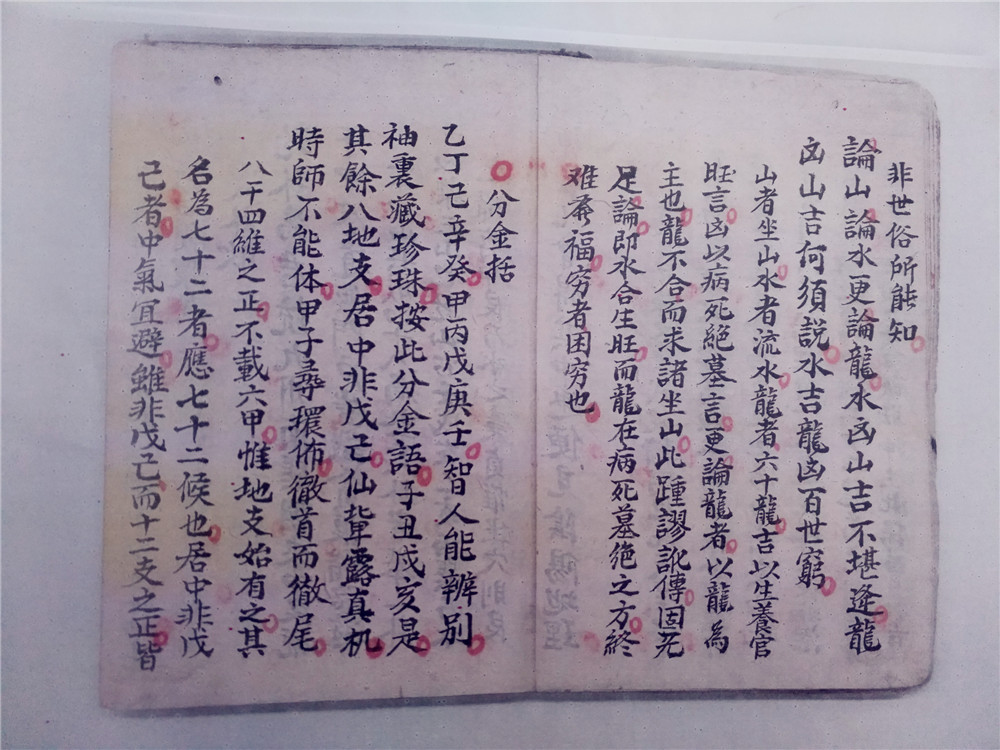 非世俗所能知
論山論水更論龍水凶山吉不堪逢龍
凶山吉何須説水吉龍凶百世窮
山者坐山水者流水龍者六十龍吉以生養官
旺言凶以病死絕墓言更論龍者以龍為
主也龍不合而求諸坐山此踵謬訛傳固无
足論即水合生旺而龍在病死墓绝之方終
难發福穷者困穷也
分金括
乙丁己辛癸甲丙戊庚壬智人能辨别
袖裏藏珍珠按此分金語子丑戌亥是
其餘八地支居中非戊己仙軰露真机
時師不能体甲子尋環佈徹首而徹尾
八干四維之正不載六甲惟地支始有之其
名為七十二者應七十二候也居中非戊
己者中氣宜避雖非戊己而十二支之正皆